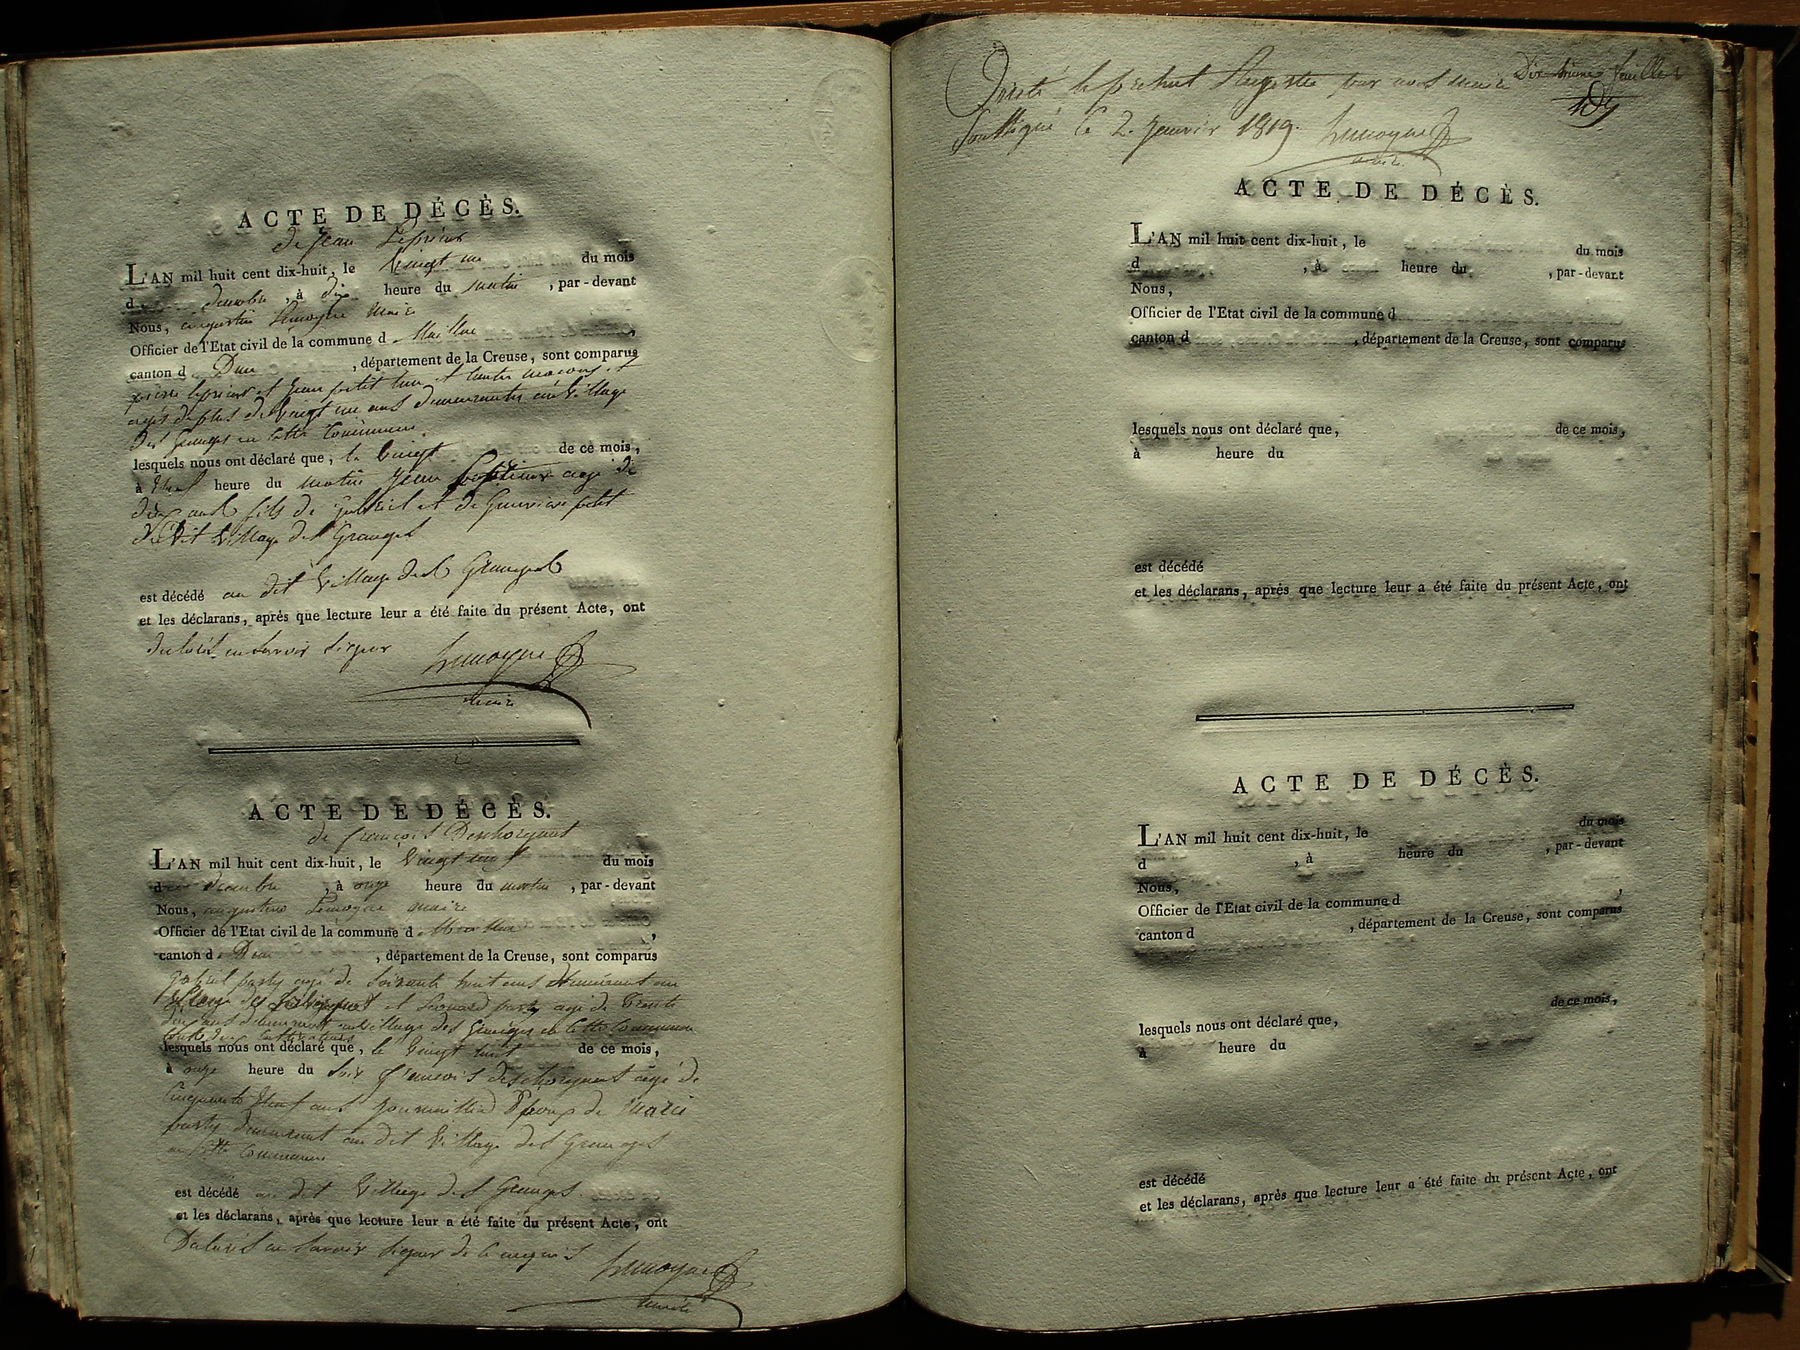 ACTE DE DÉCÈS.
de jean
L'AN mil huit cent dix-huit, le vingt un du mois
d decembre, à dix heure du matin, par-devant
Nous, augustin Lemoyne maire
Officier de l'Etat civil de la commune d
canton d Dun, département de la Creuse, sont comparus
et jean petit tous et
agés de plus de vingt un ans demeurants au village
des Granges en cette Commune.
lesquels nous ont déclaré que, le vingt de ce mois,
à heure du matin jean agé de
ans fils de gabriel et de petit
dudit village des Granges
est décédé au dit village des Granges
et les déclarans, après que lecture leur a été faite du présent Acte, ont
savoir signer Lemoyne
maire
ACTE DE DÉCÈS.
de françois
L'AN mil huit cent dix-huit, le vingt neuf du mois
d decembre, à onze heure du matin, par-devant
Nous, augustin Lemoyne maire
Officier de l'Etat civil de la commune d
canton d Dun, département de la Creuse, sont comparus
gabriel party agé de soixante huit ans demeurant au
village des et Leonard party agé de trente
ans demeurant au village des Granges en cette Commune
lesquels nous ont déclaré que, le vingt huit de ce mois,
à onze heure du soir françois agé de
cinquante ans Epoux de marie
party demeurant au dit village des Granges
en cette Commune
est décédé au dit village des Granges.
et les déclarans, après que lecture leur a été faite du présent Acte, ont
savoir signer de ce requis Lemoyne
maire
le présent Registre par nous maire
Soussigné le 2. janvier 1819. Lemoyne
maire
feuillet
ACTE DE DÉCÈS.
L'AN mil huit cent dix-huit, le du mois
d , à heure du , par-devant
Nous,
Officier de l'Etat civil de la commune d
canton d , département de la Creuse, sont comparus
lesquels nous ont déclaré que, de ce mois,
à heure du
est décédé
et les déclarans, après que lecture leur a été faite du présent Acte, ont
ACTE DE DÉCÈS.
L'AN mil huit cent dix-huit, le du mois
d , à heure du , par-devant
Nous,
Officier de l'Etat civil de la commune d ,
canton d , département de la Creuse, sont comparus
lesquels nous ont déclaré que, de ce mois,
à heure du
est décédé
et les déclarans, après que lecture leur a été faite du présent Acte, ont